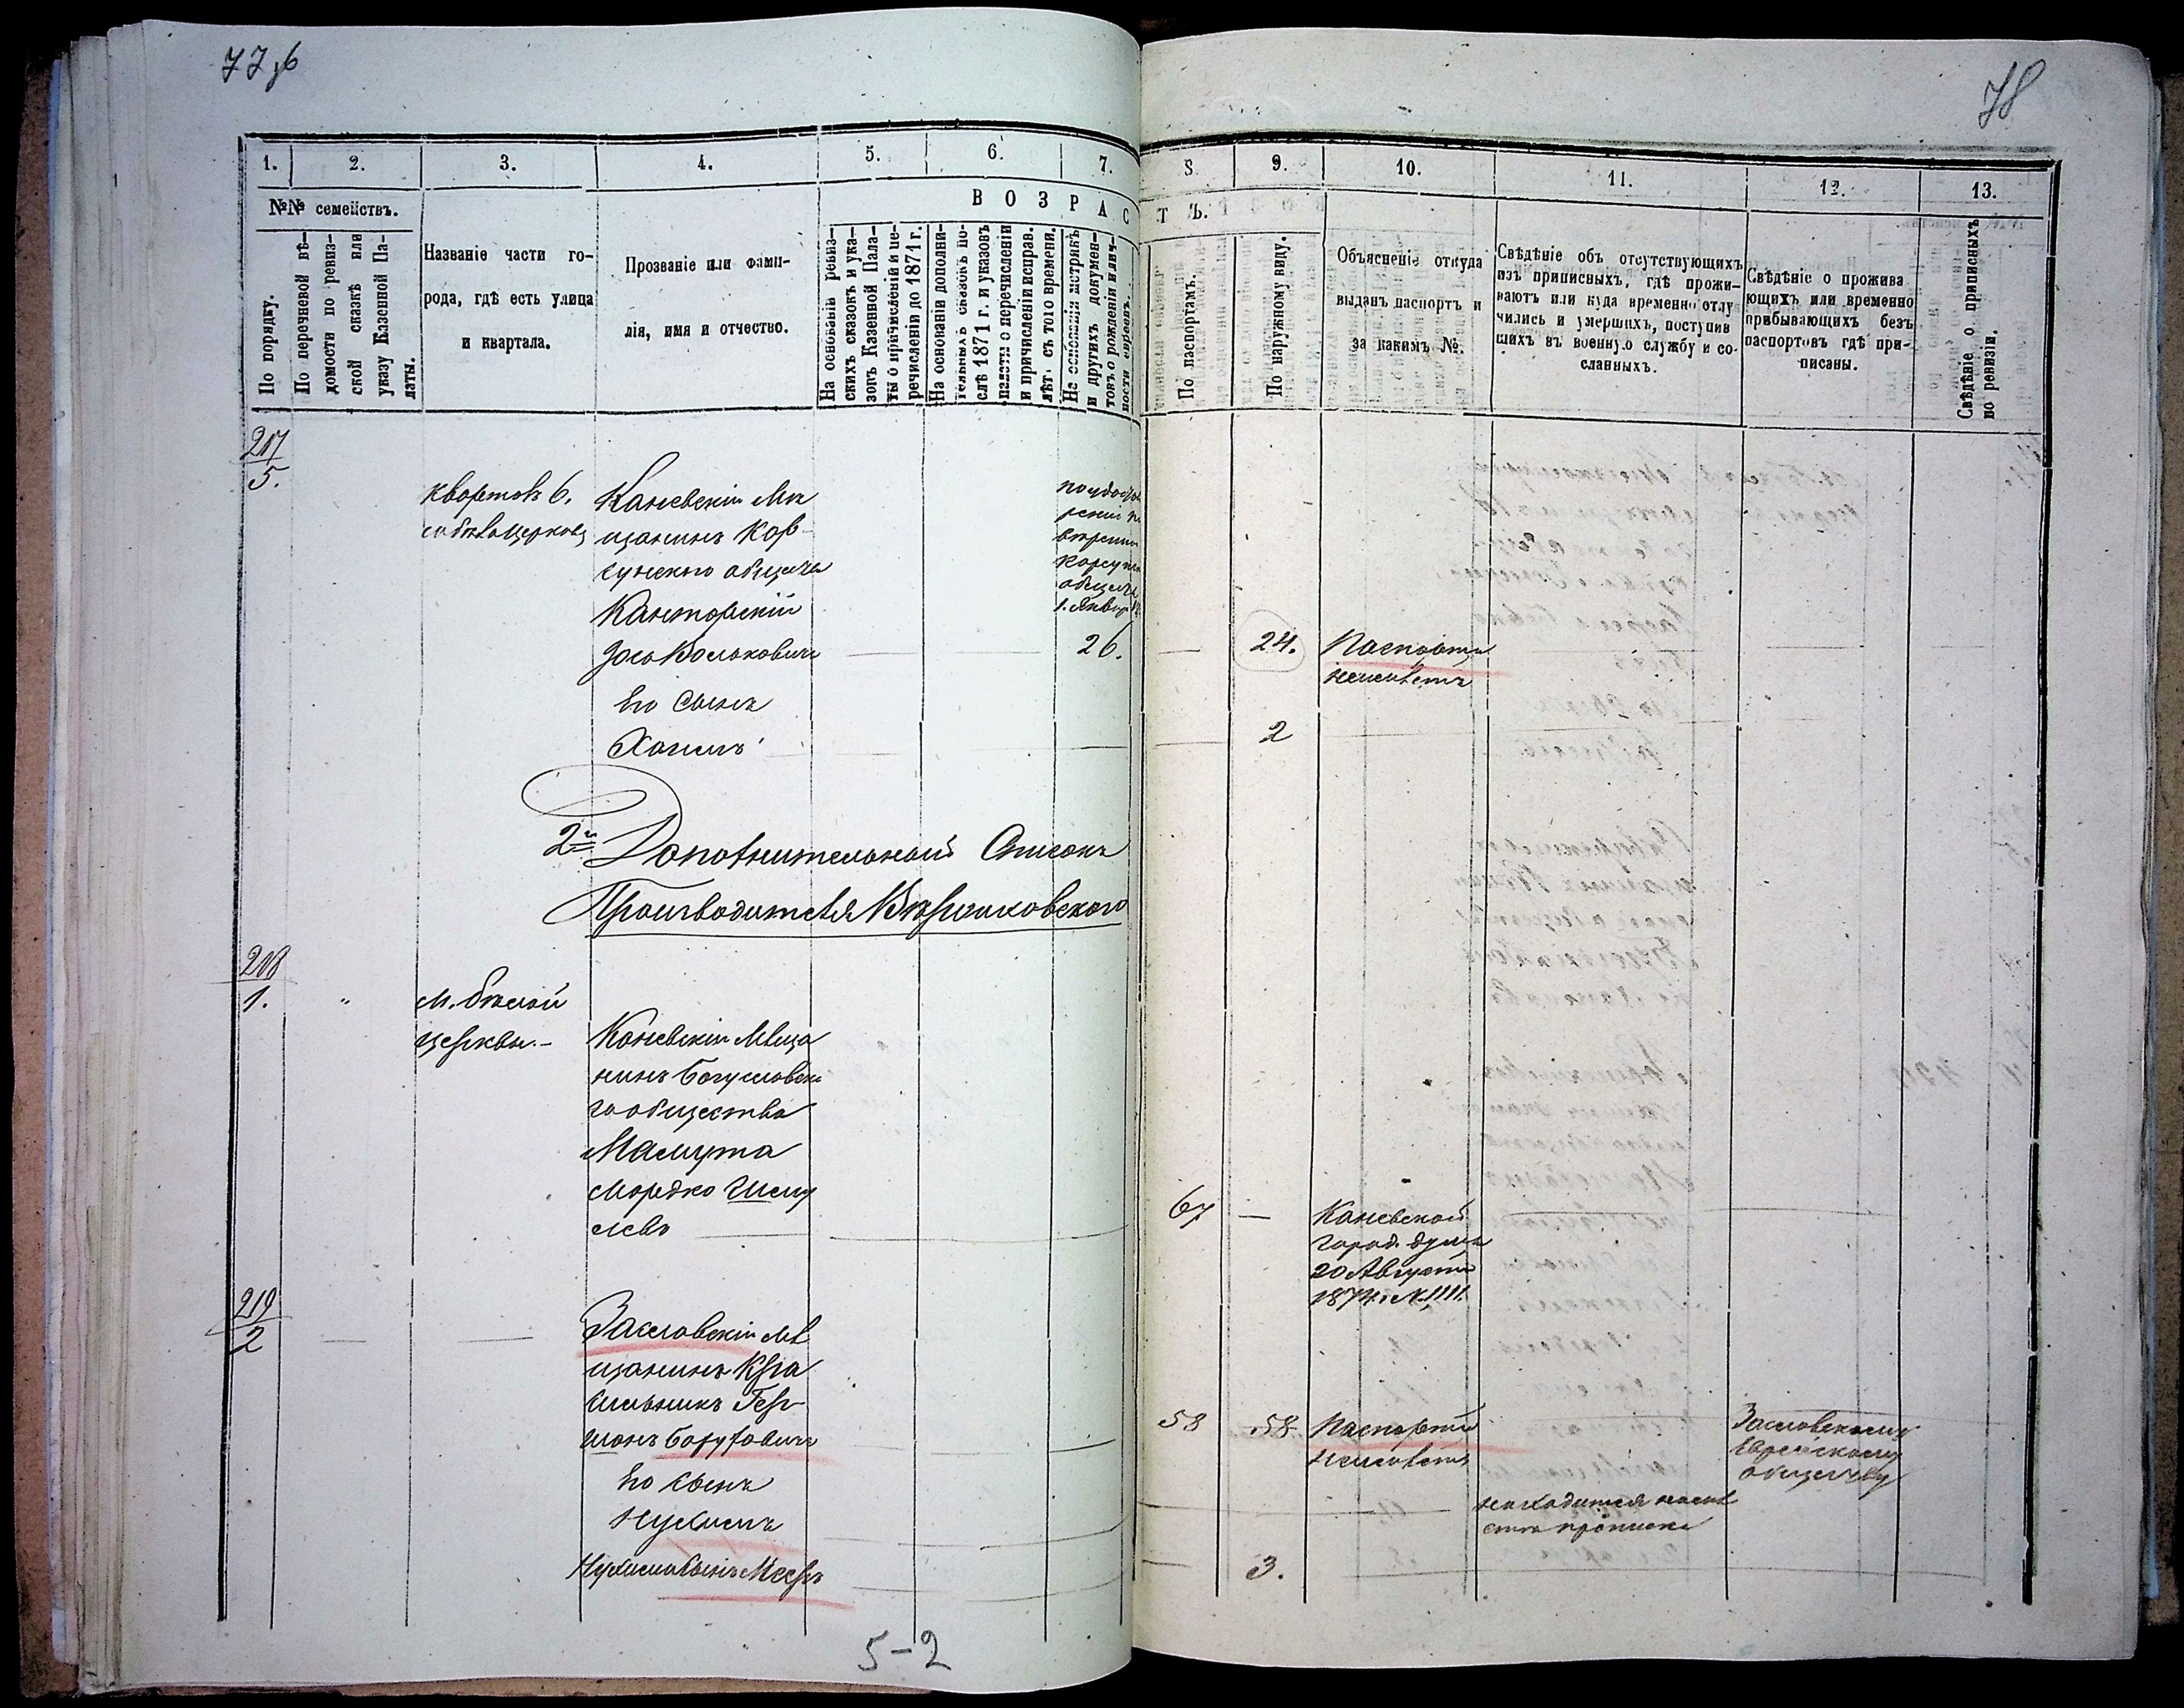 77 об
78
1. 2. 3. 4. 5. 6. 7. 8. 9. 10. 11. 12. 13.
№№ семействъ.
ВОЗРАСТЪ.
По порядку.
По перечневой вѣ-
домости по ревиз-
ской сказкѣ или
указу Казенной Па-
латы.
Названіе части го-
рода, гдѣ есть улица
и квартала.
Прозваніе или фами-
лія, имя и отчество.
На основаніи ревиз-
скихъ сказокъ и ука-
зовъ Казенной Пала-
ты о причисленіи и пе-
речисленіи до 1871 г.
На основаніи дополни-
тельныхъ сказокъ по-
слѣ 1871 г. и указовъ
палаты о перечисленіи
и причисленіи исправ.
лѣт. съ того времени.
На основаніи метрикъ
и другихъ докумен-
товъ о рожденіи и лич-
ности евреевъ.
По паспортамъ.
По наружному виду.
Объясненіе откуда
выданъ паспортъ и
за какимъ №.
Свѣдѣніе объ отсутствующихъ
изъ приписныхъ, гдѣ прожи-
ваютъ или куда временно отлу
чились и умершихъ, поступив
шихъ въ военную службу и со-
сланныхъ.
Свѣдѣніе о прожива
ющихъ или временно
прибывающихъ безъ
паспортовъ гдѣ при-
писаны.
Свѣдѣніе о приписныхъ
по ревизіи.
217
5.
Каневскій Мѣ
щанинъ Кор-
сунскаго общества
Канторскій
1. Январ
26. 24. Паспорта
неимѣетъ
Его сынъ
2
2й Дополнительный Списокъ
Производителя
218
1. " м. Бѣлой
Церкви.- Каневскій Мѣща
нинъ Богуславска
го общества
Мамута
Мордко Шму
левъ 67 — Каневской
город. думы
20 Августа
1874 г. №1111.
219
2 Заславскій мѣ
щанинъ Кра
сильникъ Гер-
шонъ Боруховичъ 58 58 Паспорта
неимѣетъ
Заславскому
Еврейскому
обществу
Его сынъ
Нухимъ находится на мѣ
стѣ приписки
Нухима сынъ Мееръ 3.
5-2